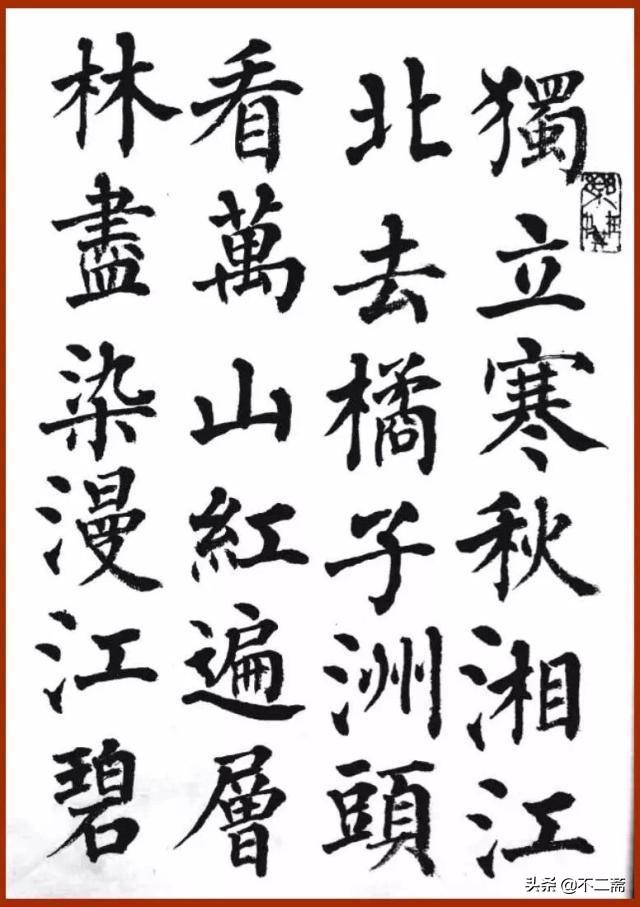 獨立寒秋湘江
北去橘子洲頭
看萬山紅遍層
林盡染漫江碧
头条 @不二斋